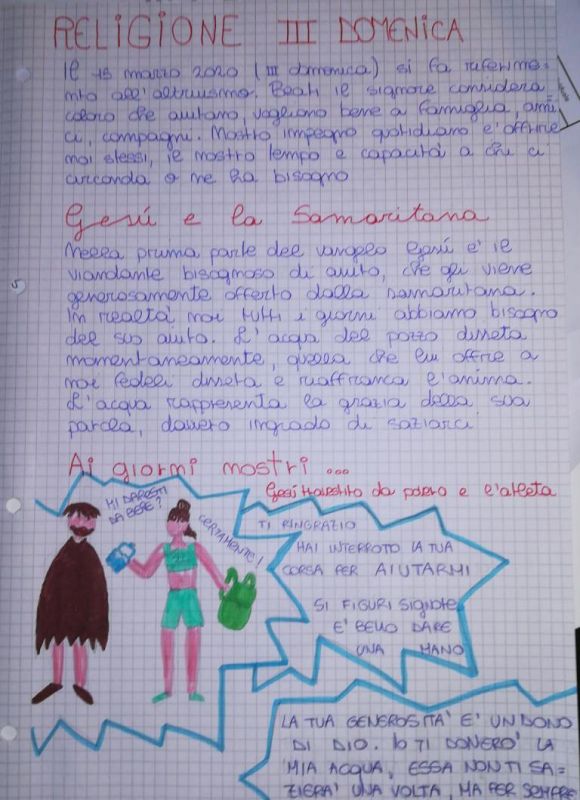 RELIGIONE III DOMENICA
Il 15 marzo 2020 (III domenica) si fa riferime-
nto all'altruismo. Beati il signore considera
coloro che aiutano, vogliono bene a famiglia, ami
ci, compagni. Nostro impegno quotidiano è offrire
noi stessi, il nostro tempo e capacità a chi ci
circonda o ne ha bisogno
Gesù e la Samaritana
Nella prima parte del vangelo Gesù è il
viandante bisognoso di aiuto, che gli viene
generosamente offerto dalla samaritana.
In realtà noi tutti i giorni abbiamo bisogno
del suo aiuto. L'acqua del pozzo disseta
momentaneamente, quella che lui offre a
noi fedeli disseta e riaffranca l'anima.
L'acqua rappresenta la grazia della sua
parola, davvero ingrado di saziarci
Ai giorni nostri ...
Gesù travestito da povero e l'atleta
MI DARESTI
DA BERE?
CERTAMENTE!
TI RINGRAZIO
HAI INTERROTO LA TUA
CORSA PER AIUTARMI
SI FIGURI SIGNORE
E' BELLO DARE
UNA MANO
LA TUA GENEROSITA' E' UN DONO
DI DIO. IO TI DONERO' LA
MIA ACQUA, ESSA NON TI SA=
ZIERA' UNA VOLTA, MA PER SEMPRE